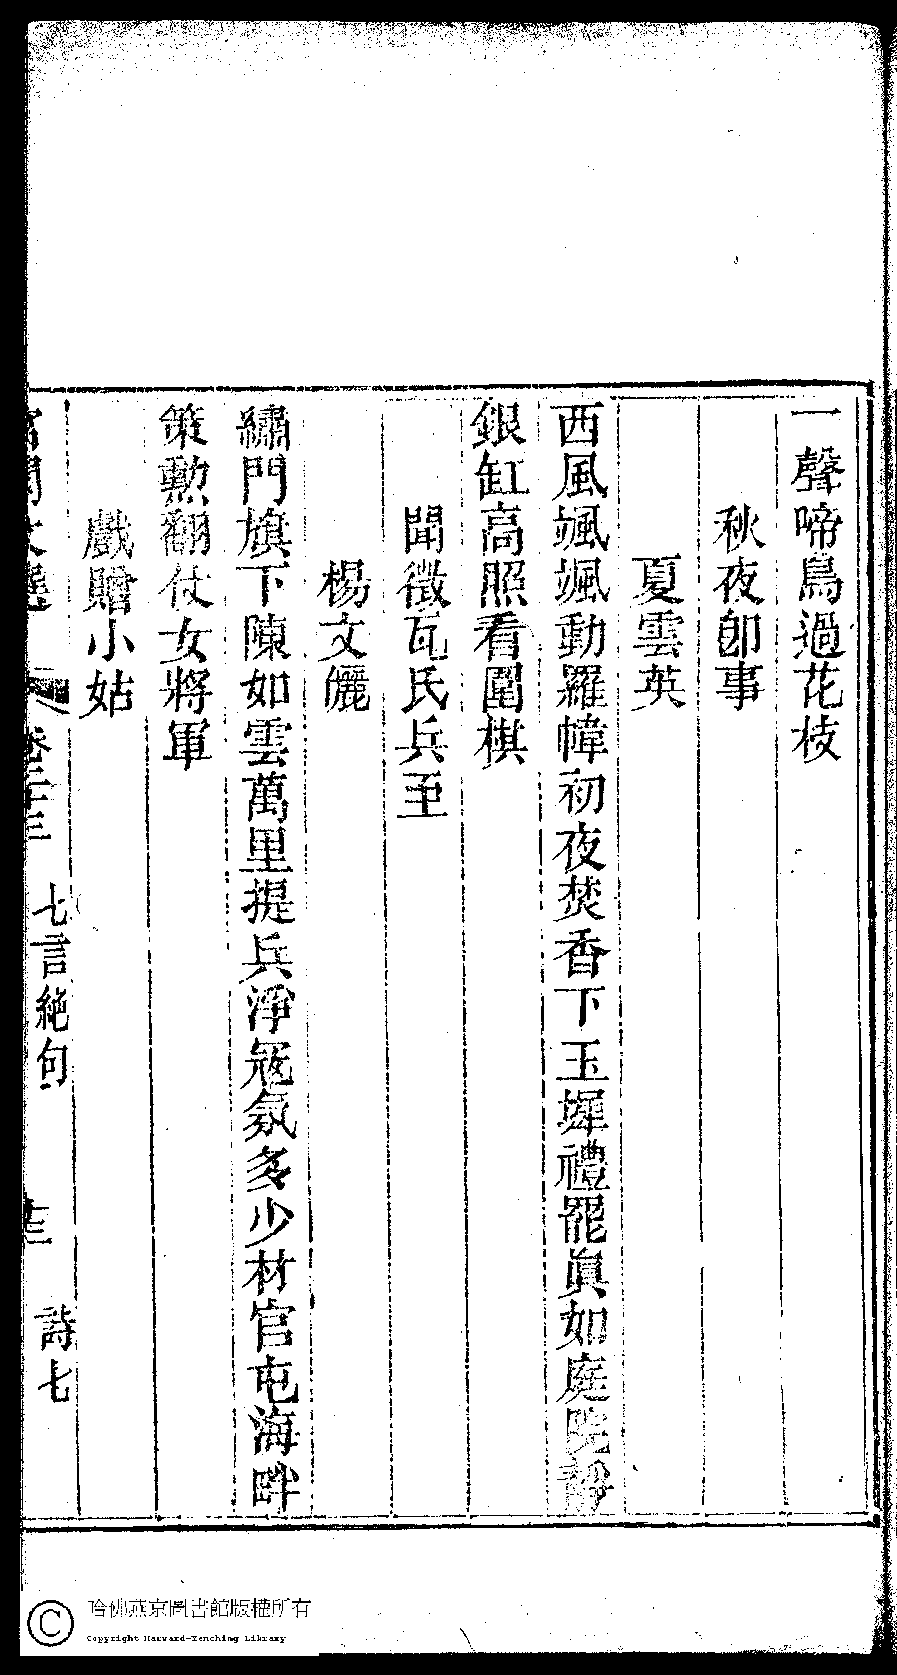 一聲啼鳥過花枝
秋夜卽事
夏雲英
西風颯颯動羅幃初夜焚香下玉墀禮罷眞如庭院靜
銀缸高照看圍棋
聞徵瓦氏兵至
楊文儷
繡門旗下陳如雲萬里提兵淨寇氛多少材官屯海畔
策勲翻仗女將軍
戲贈小姑
宮閨文選 卷二十三 七言絶句 十三 詩七
哈佛燕京圖書館版權所有
Copyright Harvard-Yenching Library